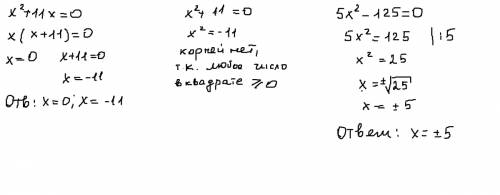 x²+11x=0
x(x+11)=0
x=0 x+11=0
x=-11
Отв: x=0; x=-11
x²+11=0
x²=-11
корней нет,
т.к. любое число
в квадрате ⩾0
5x²-125=0
5x²=125 |:5
x²=25
x=±√25
x=±5
Ответ: x=±5